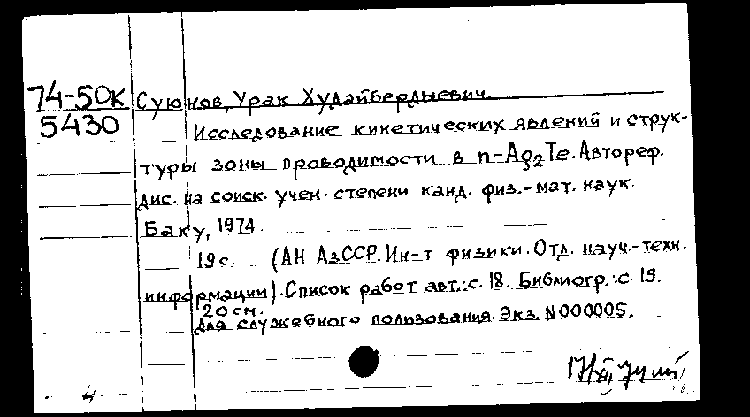 74-50к Суюнов, Урак Худайбердыевич.
5430
Исследование кинетических явлений и струк-
туры зоны проводимости в n-Ag2Te. Автореф.
дис. на соиск. учен. степени канд. физ.-мат. наук.
Баку, 1974.
19с. (АН АзССР. Ин-т физики. Отд. науч.-техн.
информации). Список работ авт.: с. 18. Библиогр.: с. 19.
20 см.
Для служебного пользования. Экз. N000005.